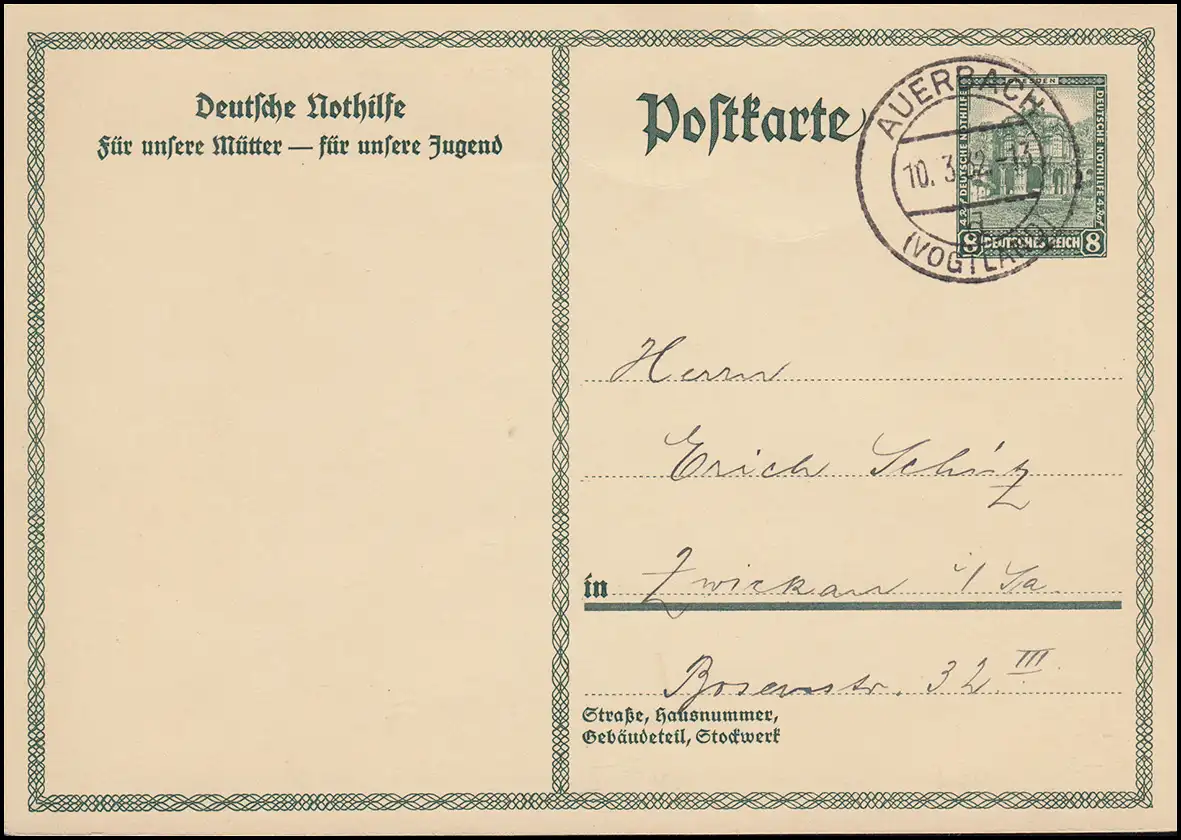 Deutsche Nothilfe
Für unsere Mütter — für unsere Jugend
Postkarte
AUERBACH
10. 3.32.-13
(VOGTLAND)
DRESDEN
4 Rpf DEUTSCHE NOTHILFE
DEUTSCHE NOTHILFE 4 Rpf
8 DEUTSCHES REICH 8
Herrn
Erich Schütz
in Zwickau i/Sa.
32 III
Straße, Hausnummer,
Gebäudeteil, Stockwerk